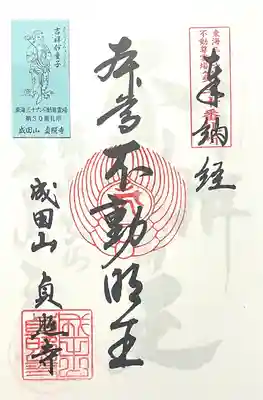 奉納経
東海三十六
不動尊霊場
本尊不動明王
成田山 貞照寺
吉祥妙童子
東海三十六不動尊霊場
第30番札所
成田山 貞照寺